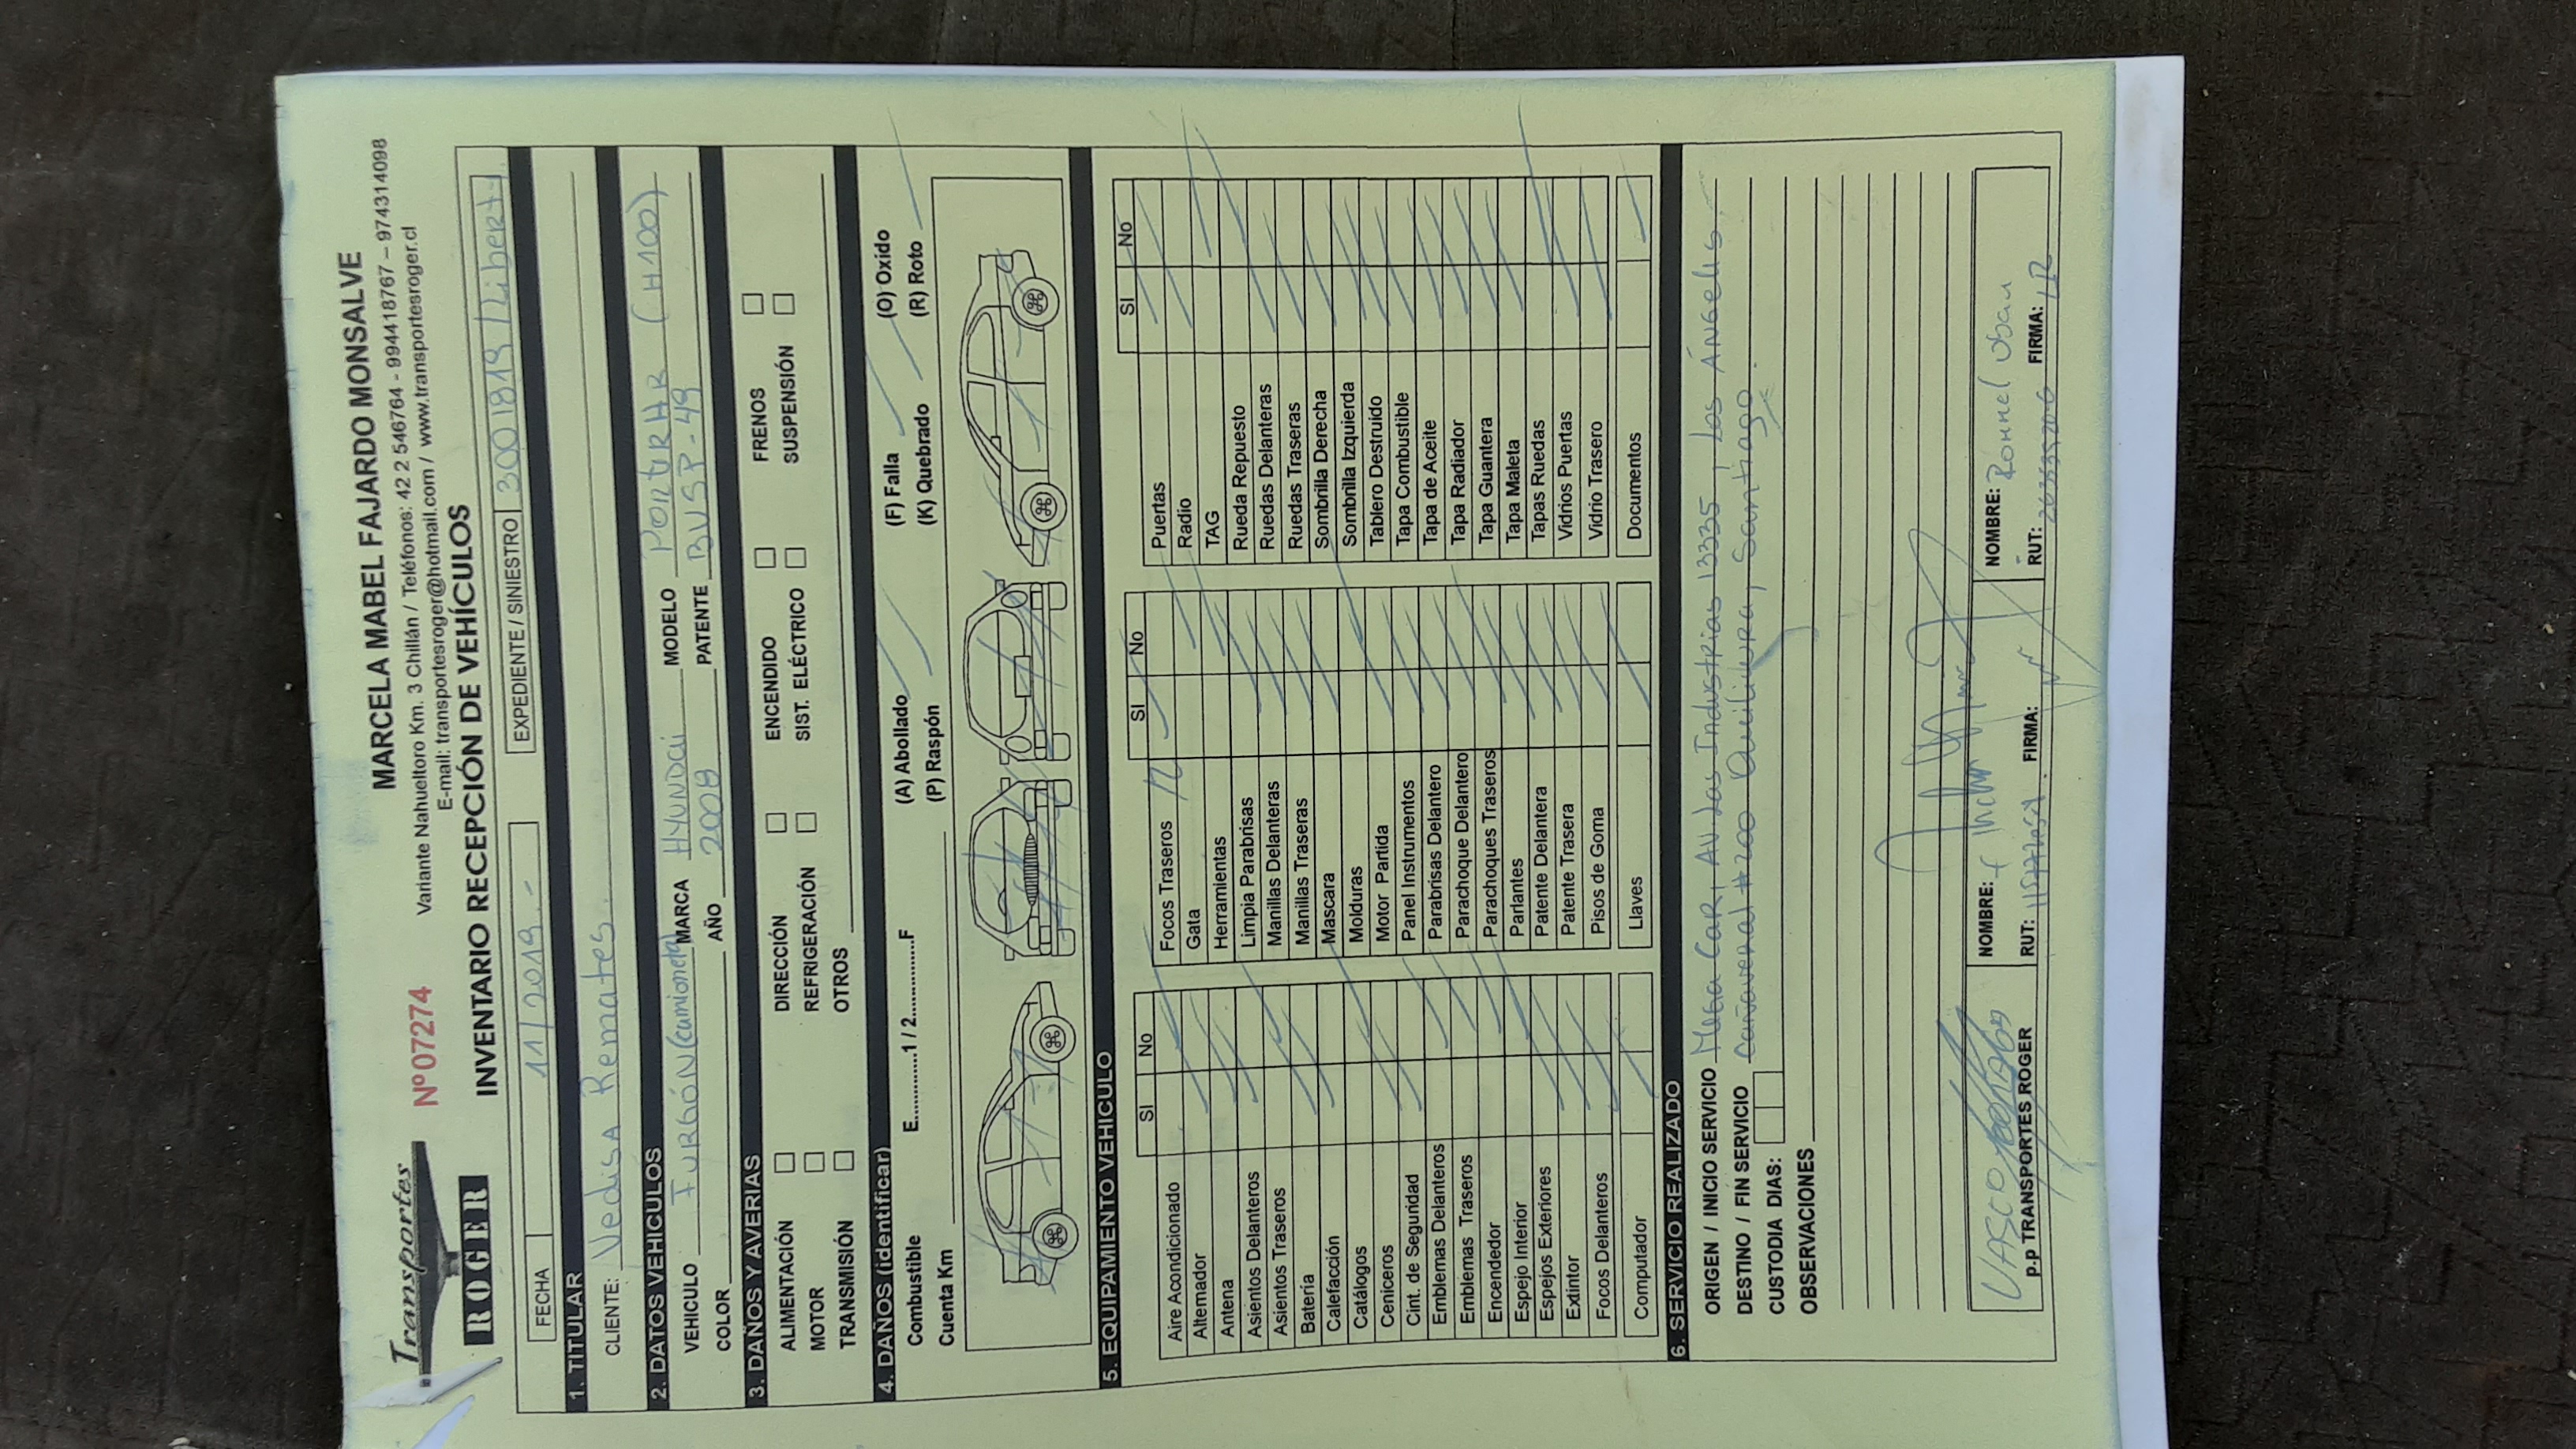 Transportes
ROGER
Nº 07274
MARCELA MABEL FAJARDO MONSALVE
Variante Nahueltoro Km. 3 Chillán / Teléfonos: 42 2 546764 - 994418767 – 974314098
E-mail: transportesroger@hotmail.com / www.transportesroger.cl
INVENTARIO RECEPCIÓN DE VEHÍCULOS
FECHA 11/2019.- EXPEDIENTE / SINIESTRO 3001819 /Libert
1. TITULAR
CLIENTE: Vedisa Remates.
2. DATOS VEHICULOS
VEHICULO FURGÓN (camioneta) MARCA HYUNDAI MODELO PORTER HR (H100)
COLOR AÑO 2008 PATENTE BVSP-49
3. DAÑOS Y AVERIAS
ALIMENTACIÓN DIRECCIÓN ENCENDIDO FRENOS
MOTOR REFRIGERACIÓN SIST. ELÉCTRICO SUSPENSIÓN
TRANSMISIÓN OTROS
4. DAÑOS (identificar)
Combustible E.............1 / 2...............F (A) Abollado (F) Falla (O) Oxido
Cuenta Km (P) Raspón (K) Quebrado (R) Roto
5. EQUIPAMIENTO VEHICULO
SI No SI No SI No
Aire Acondicionado Focos Traseros Puertas
Alternador Gata Radio
Antena Herramientas TAG
Asientos Delanteros Limpia Parabrisas Rueda Repuesto
Asientos Traseros Manillas Delanteras Ruedas Delanteras
Batería Manillas Traseras Ruedas Traseras
Calefacción Mascara Sombrilla Derecha
Catálogos Molduras Sombrilla Izquierda
Ceniceros Motor Partida Tablero Destruido
Cint. de Seguridad Panel Instrumentos Tapa Combustible
Emblemas Delanteros Parabrisas Delantero Tapa de Aceite
Emblemas Traseros Parachoque Delantero Tapa Radiador
Encendedor Parachoques Traseros Tapa Guantera
Espejo Interior Parlantes Tapa Maleta
Espejos Exteriores Patente Delantera Tapas Ruedas
Extintor Patente Trasera Vidrios Puertas
Focos Delanteros Pisos de Goma Vidrio Trasero
Computador Llaves Documentos
6. SERVICIO REALIZADO
ORIGEN / INICIO SERVICIO Mega Car, AV Las Industrias 13335, Los Ángeles.
DESTINO / FIN SERVICIO Cañaveral #200 Quilicura, Santiago.
CUSTODIA DIAS:
OBSERVACIONES
VASCO
p.p TRANSPORTES ROGER
NOMBRE:
RUT: FIRMA:
NOMBRE: Rommel
RUT: FIRMA: